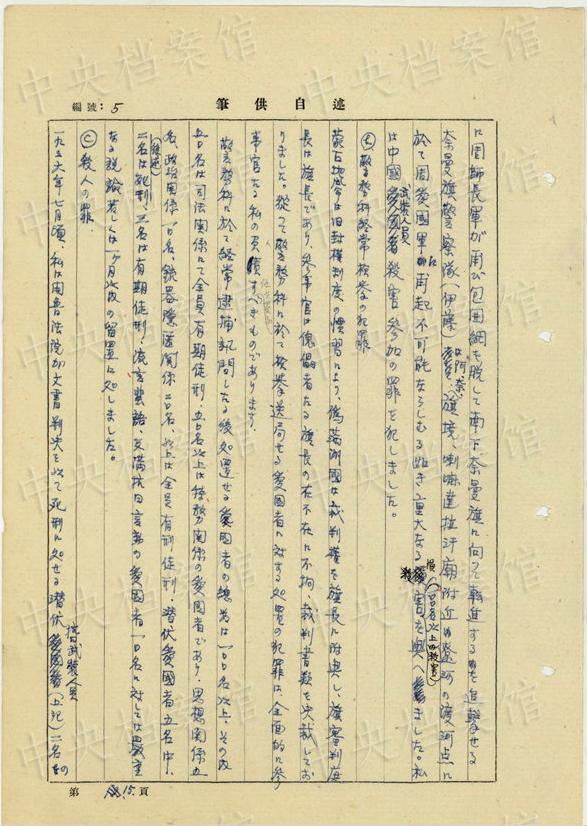 中央档案馆
述自供筆
編號：5
に周師長軍が再び包囲網を脱して南下奈曼旗に向って転進するのを追撃せる
奈曼旗警察隊（伊藤）は阿、奈、旗境、喇嘛達拉汗廟附近の遼河の渡河点に
於て周愛國軍に再起不可能ならしむる如き重大なる損害（一〇〇名以上の殺害）を与へました。私
は中國武装人員殺害参加の罪を犯しました。
警務科経常検挙の犯罪
蒙古地帯は旧封建制度の慣習により、偽満洲國は裁判権を旗長に附与し、旗審判庭
長は旗長であり、参事官は傀儡者たる旗長の在不在に拘らず裁判書類を決裁してお
りました。従って警務科に於て検挙送局せる愛國者に対する処置の犯罪は、全面的に参
事官たる私の責任すべきものであります。
警務科に於て経常逮捕訊問したる後処置せる愛國者の総数は一〇〇名以上、その内
五〇名は司法関係にて全員有期徒刑、五〇名以上は特務関係の愛國者であり、思想関係五
名、政治関係一〇名、銃器隠匿関係二〇名、以上は全員有期徒刑、潜伏愛國者五名中、
二名は死刑、三名は有期徒刑、流言蜚語、反満抗日言動の愛國者一〇名に対しては厳重
なる説諭若くは一ヶ月以内の留置に処しました。
C 殺人の罪
一九三六年七月頃、私は開魯法院が文書判決を以て死刑に処せる潜伏抗日武装人員二名を
第 15 頁